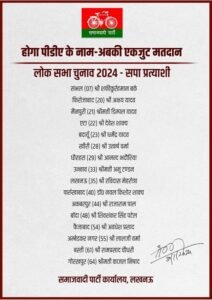 समाजवादी पार्टी
होगा पीडीए के नाम-अबकी एकजुट मतदान
लोक सभा चुनाव 2024 - सपा प्रत्याशी
संभल (07) श्री शफीकुर्रहमान बर्क
फिरोजाबाद (20) श्री अक्षय यादव
मैनपुरी (21) श्रीमती डिम्पल यादव
एटा (22) श्री देवेश शाक्य
बदायूँ (23) श्री धर्मेंद्र यादव
खीरी (28) श्री उत्कर्ष वर्मा
धौरहरा (29) श्री आनन्द भदौरिया
उन्नाव (33) श्रीमती अनु टण्डन
लखनऊ (35) श्री रविदास मेहरोत्रा
फर्रुखाबाद (40) डॉ0 नवल किशोर शाक्य
अकबरपुर (44) श्री राजाराम पाल
बाँदा (48) श्री शिवशंकर सिंह पटेल
फैजाबाद (54) श्री अवधेश प्रसाद
अम्बेडकर नगर (55) श्री लालजी वर्मा
बस्ती (61) श्री रामप्रसाद चौधरी
गोरखपुर (64) श्रीमती काजल निषाद
समाजवादी पार्टी कार्यालय, लखनऊ